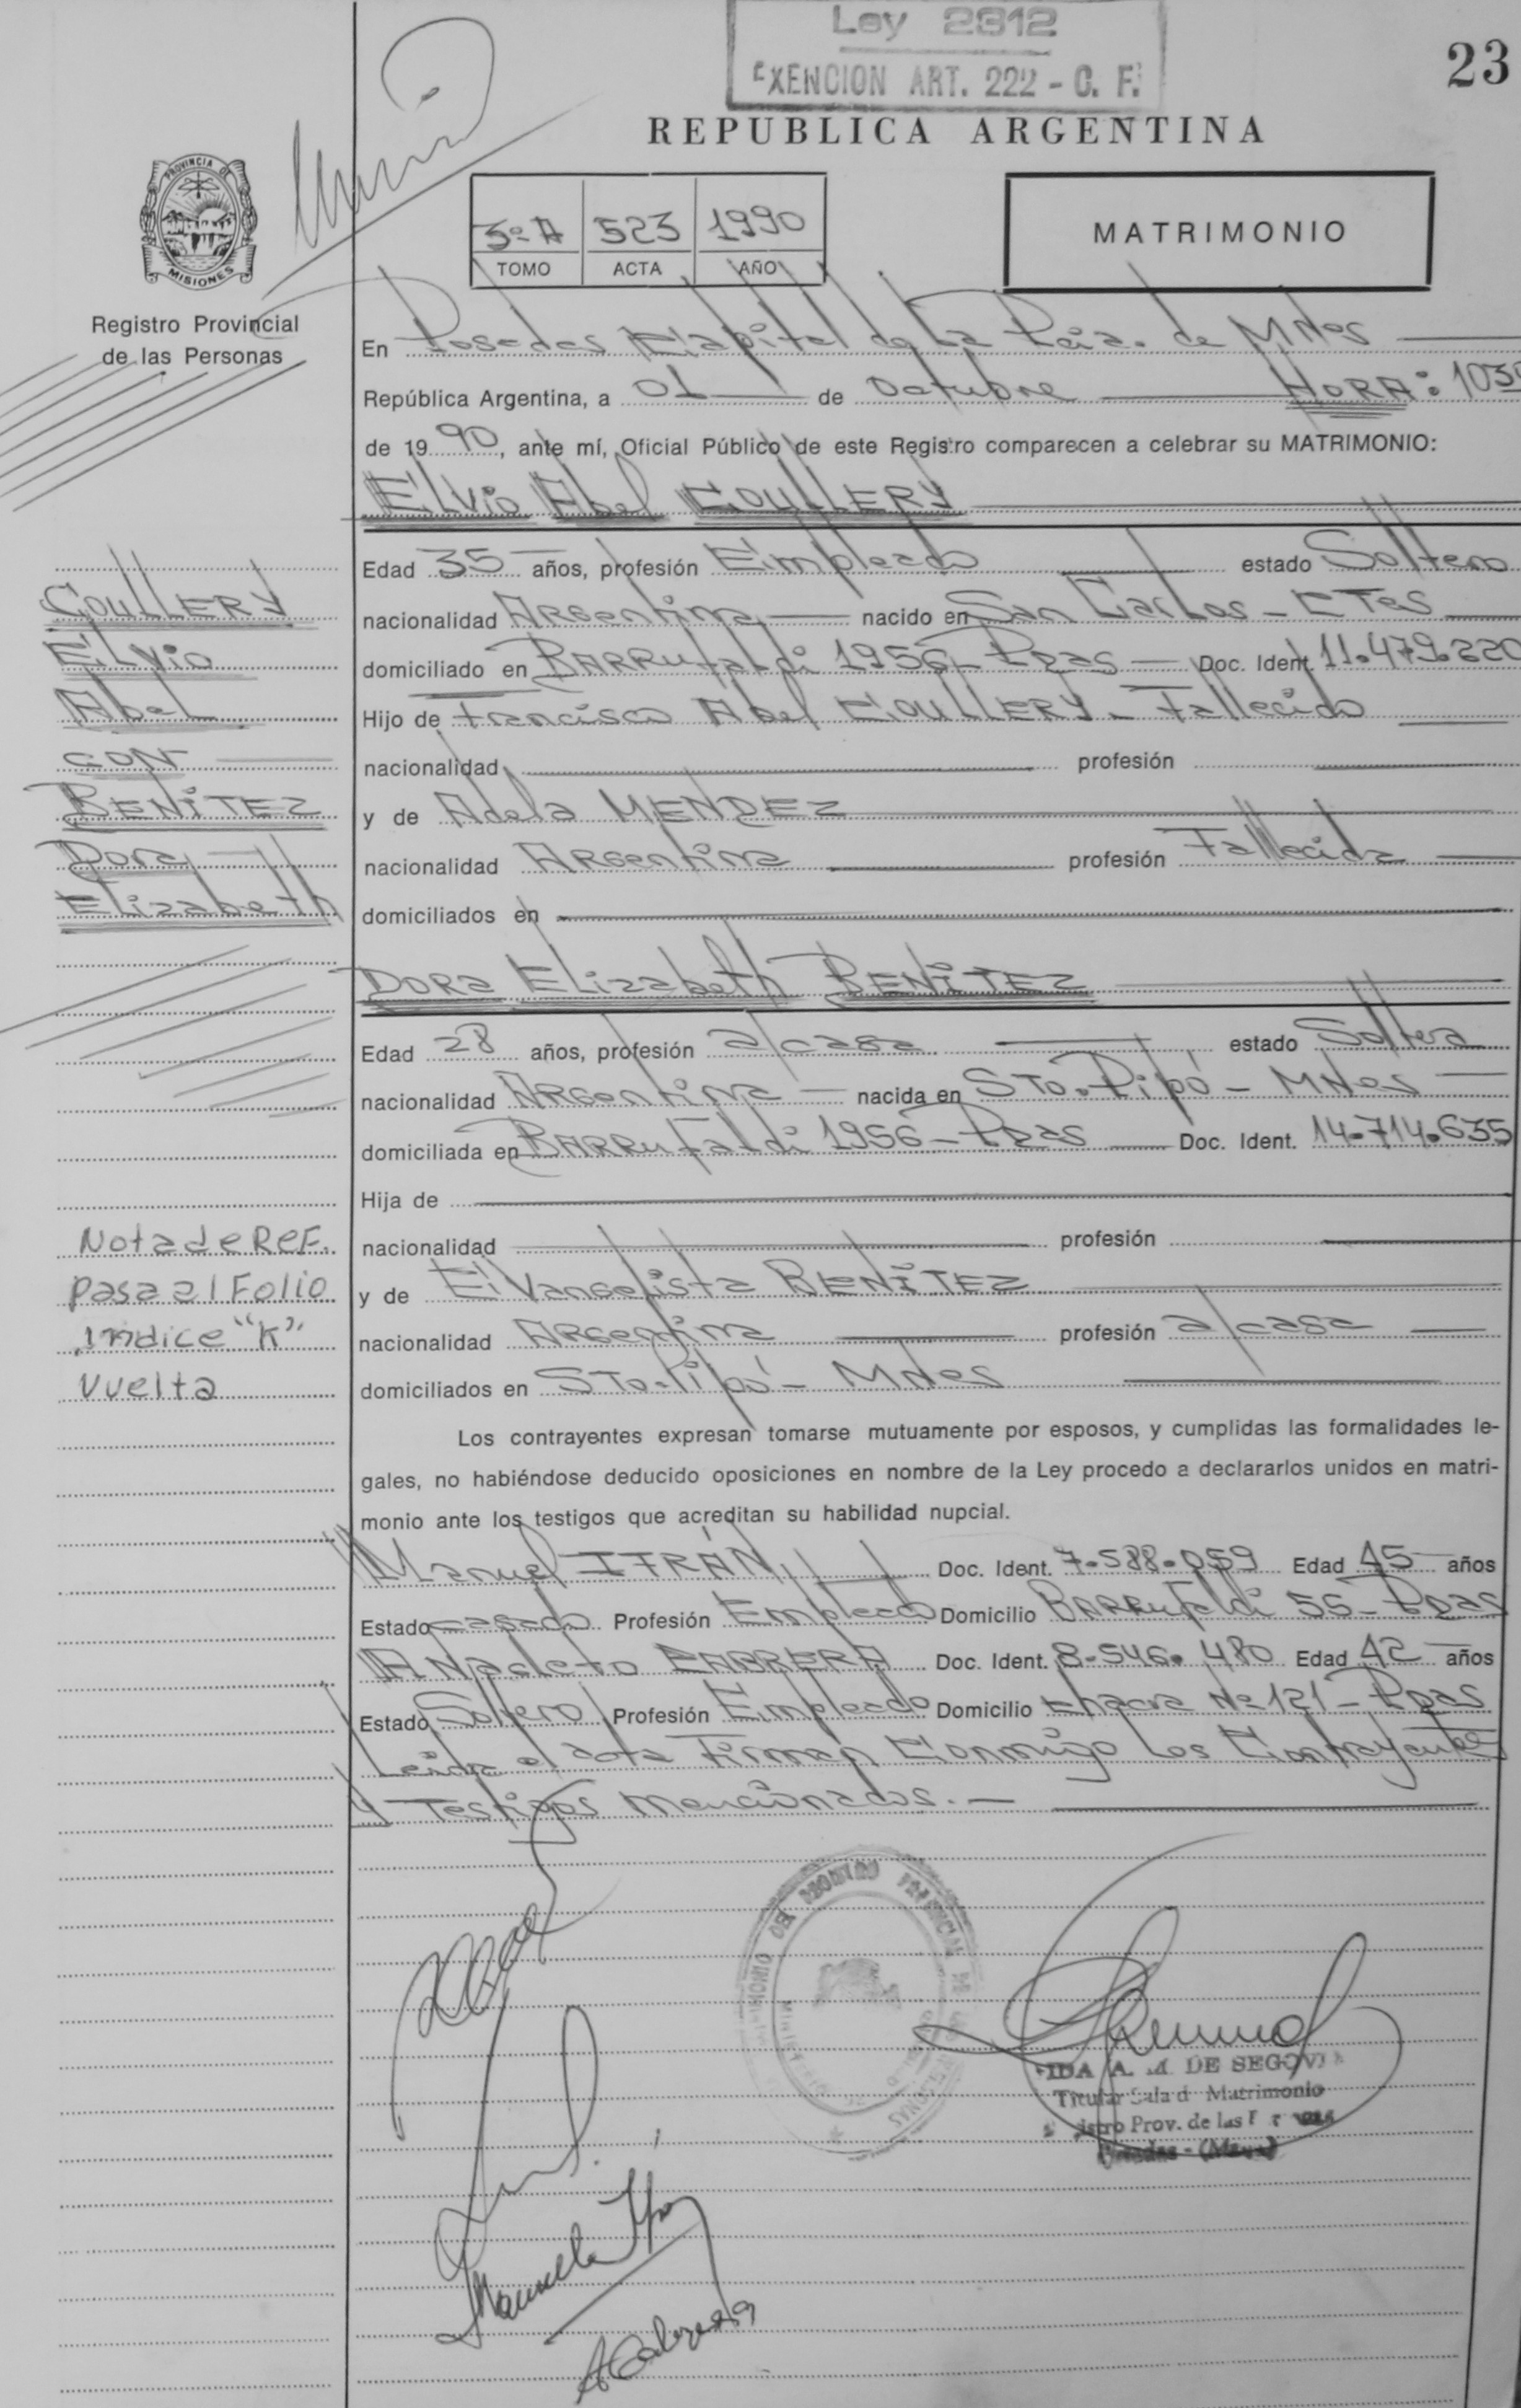 Ley 2312
EXENCION ART. 222 - C. F.
23
REPUBLICA ARGENTINA
PROVINCIA DE
MISIONES
3º A 523 1990
TOMO ACTA AÑO
MATRIMONIO
Registro Provincial
de las Personas
En Posadas Capital de La Pcia. de Mnes
República Argentina, a 01 de Octubre HORA: 1030
de 1990, ante mí, Oficial Público de este Registro comparecen a celebrar su MATRIMONIO:
Elvio Abel COULLERY
Edad 35 años, profesión Empleado estado Soltero
nacionalidad Argentina nacido en San Carlos - CTes
domiciliado en BARRUFALDI 1956 - Pdas - Doc. Ident. 11.479.220
Hijo de Francisco Abel COULLERY - Fallecido
nacionalidad profesión
y de Adela MENDEZ
nacionalidad Argentina profesión Fallecida
domiciliados en
COULLERY
Elvio
Abel
CON
BENITEZ
Dora
Elizabeth
DORA Elizabeth BENITEZ
Edad 28 años, profesión a/casa estado Soltera
nacionalidad Argentina nacida en STo. Pipó - Mnes
domiciliada en BARRUFALDI 1956 - Pdas Doc. Ident. 14.714.635
Hija de
nacionalidad profesión
y de Evangelista BENITEZ
nacionalidad Argentina profesión a/casa
domiciliados en STo. Pipó - Mnes
Nota de Ref.
pasa al Folio
indice "K"
Vuelta
Los contrayentes expresan tomarse mutuamente por esposos, y cumplidas las formalidades le-
gales, no habiéndose deducido oposiciones en nombre de la Ley procedo a declararlos unidos en matri-
monio ante los testigos que acreditan su habilidad nupcial.
Manuel IFRÁN Doc. Ident. 7.588.059 Edad 45 años
Estado casado Profesión Empleado Domicilio BARRUFALDI 56 - Pdas
Anacleto CABRERA Doc. Ident. 8.546.480 Edad 42 años
Estado Soltero Profesión Empleado Domicilio chacra Nº 121 - Pdas
Leida el acta Firman Conmigo Los Contrayentes
y Testigos mencionados.-
DE SEGOVIA
Titular Sala d Matrimonio
Prov. de las